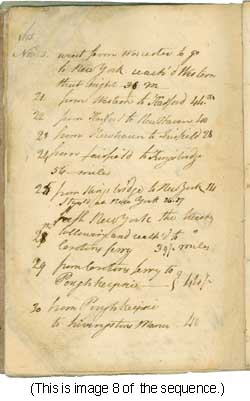 went from Worcester to go
to New York reach'd Western
that night 36 m
21 from Western to Hartford 44 m
22 from Hartford to New Haven
23 from Newhaven to Fairfield 28
24 from fairfield to Kingsbridge
56 miles
25 from Kings bridge to New York 14
Stay'd at New York 26 27
New York the
following and reach'd
ferry miles
29 from ferry to
Poughkeepsie
30 from Poughkeepsie
to Livingston Manor 40
(This is image 8 of the sequence.)